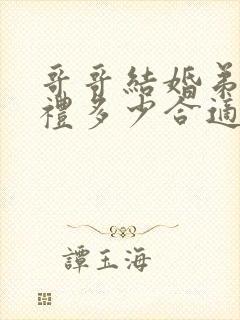 哥哥結婚弟
禮多少合適
譚玉海